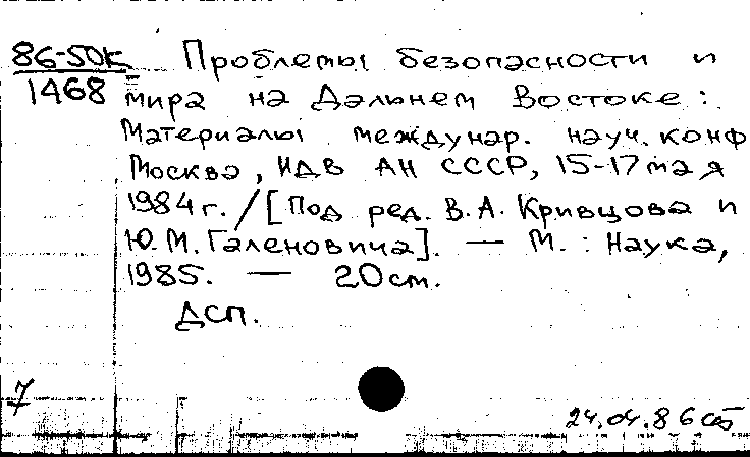 86-50к Проблемы безопасности и
1468 мира на Дальнем Востоке:
Материалы междунар. науч. конф
Москва, ИДВ АН СССР, 15-17 мая
1984 г. / [Под ред. В.А. Кривцова и
Ю.М. Галеновича]. — М.: Наука,
1985. — 20 см.
ДСП.
7
24.04.86